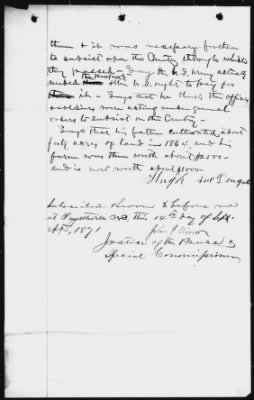 them & it was necessary for them
to subsist upon the County through which
they passed - Says the U.S. Army actually
needed the U.S. ought to pay for
it - Says that he thinks the officers
& soldiers were acting under general
orders to subsist on the County -
Says that his father cultivated about
forty acres of land in 1864 and his
farm was then worth about
and is now worth about $1000
Hugh Mc
Subscribed & sworn to before me
at Fayetteville N.C. this 14th day of
A.D. 1871
John J. Minor
Justice of the Peace &
Special Commissioner